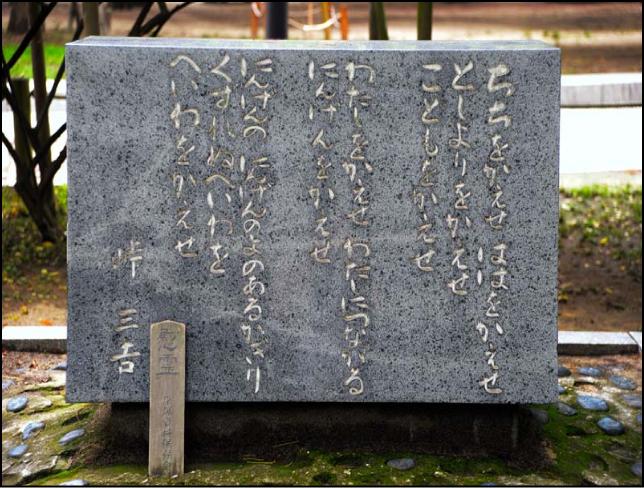 ちちをかえせ ははをかえせ
としよりをかえせ
こどもをかえせ
わたしをかえせ わたしにつながる
にんげんをかえせ
にんげんの にんげんのよのあるかぎり
くずれぬへいわを
へいわをかえせ
峠 三吉
慰霊